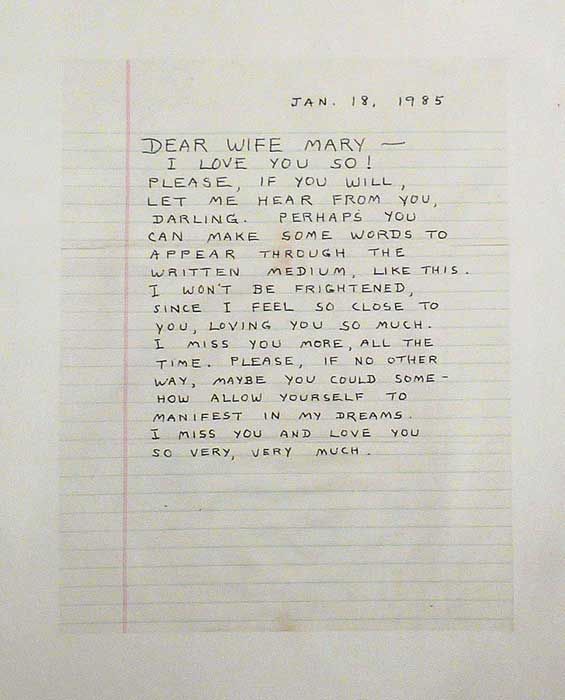 JAN. 18, 1985
DEAR WIFE MARY —
I LOVE YOU SO!
PLEASE, IF YOU WILL,
LET ME HEAR FROM YOU,
DARLING. PERHAPS YOU
CAN MAKE SOME WORDS TO
APPEAR THROUGH THE
WRITTEN MEDIUM, LIKE THIS.
I WON'T BE FRIGHTENED,
SINCE I FEEL SO CLOSE TO
YOU, LOVING YOU SO MUCH.
I MISS YOU MORE, ALL THE
TIME. PLEASE, IF NO OTHER
WAY, MAYBE YOU COULD SOME-
HOW ALLOW YOURSELF TO
MANIFEST IN MY DREAMS.
I MISS YOU AND LOVE YOU
SO VERY, VERY MUCH.